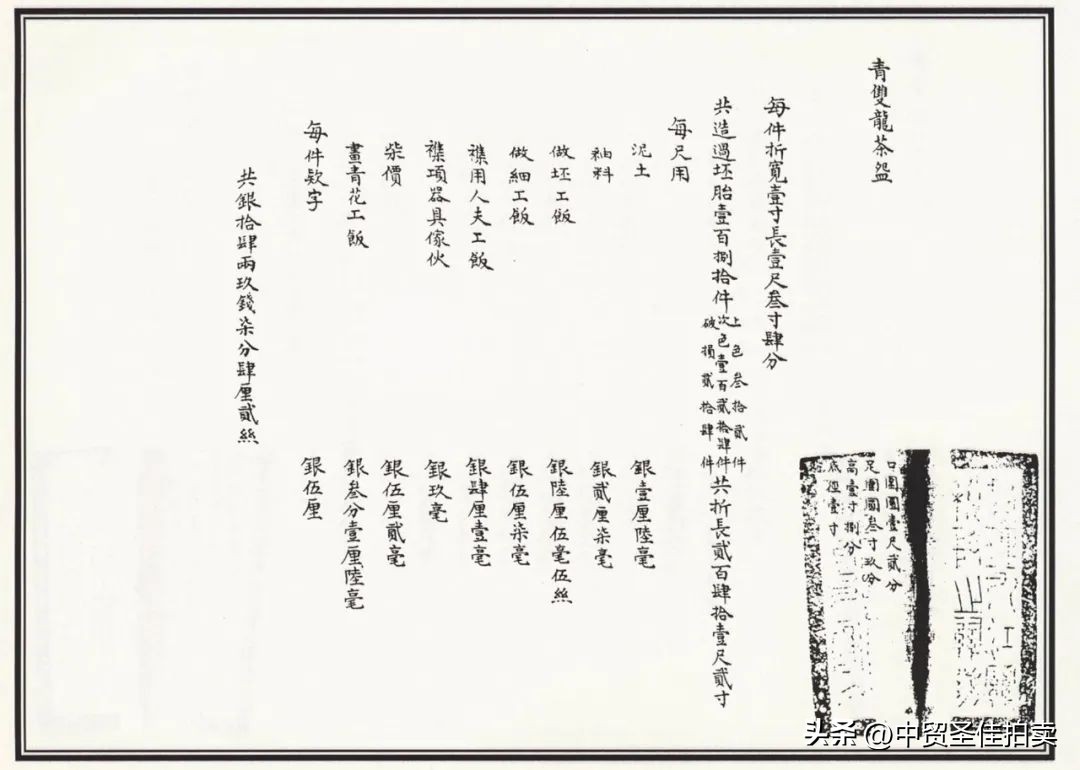 青雙龍茶盌
口圍圓壹尺貳分
足圍圓叁寸玖分
高壹寸捌分
底徑壹寸
每件折寬壹寸長壹尺叁寸肆分
共造過坯胎壹百捌拾件
上色叁拾貳件
次色壹百貳拾肆件
破損貳拾肆件
共折長貳百肆拾壹尺貳寸
每尺用
泥土 銀壹厘陸毫
釉料 銀貳厘柒毫
做坯工飯 銀陸厘伍毫伍絲
做細工飯 銀伍厘柒毫
襍用人夫工飯 銀肆厘壹毫
襍項器具傢伙 銀玖毫
柴價 銀伍厘貳毫
畫青花工飯 銀叁分壹厘陸毫
每件欵字 銀伍厘
共銀拾肆兩玖錢柒分肆厘貳絲
头条 @中贸圣佳拍卖